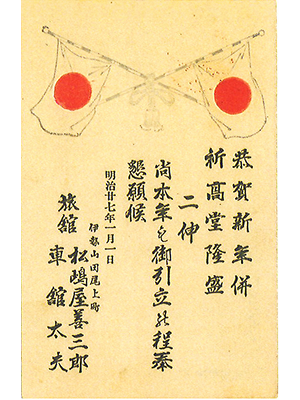 恭賀新年併
祈高堂隆盛
二伸
尚本年も御引立の程奉
懇願候
明治廿七年一月一日
伊勢山田尾上町
松嶋屋善三郎
旅舘 車舘太夫